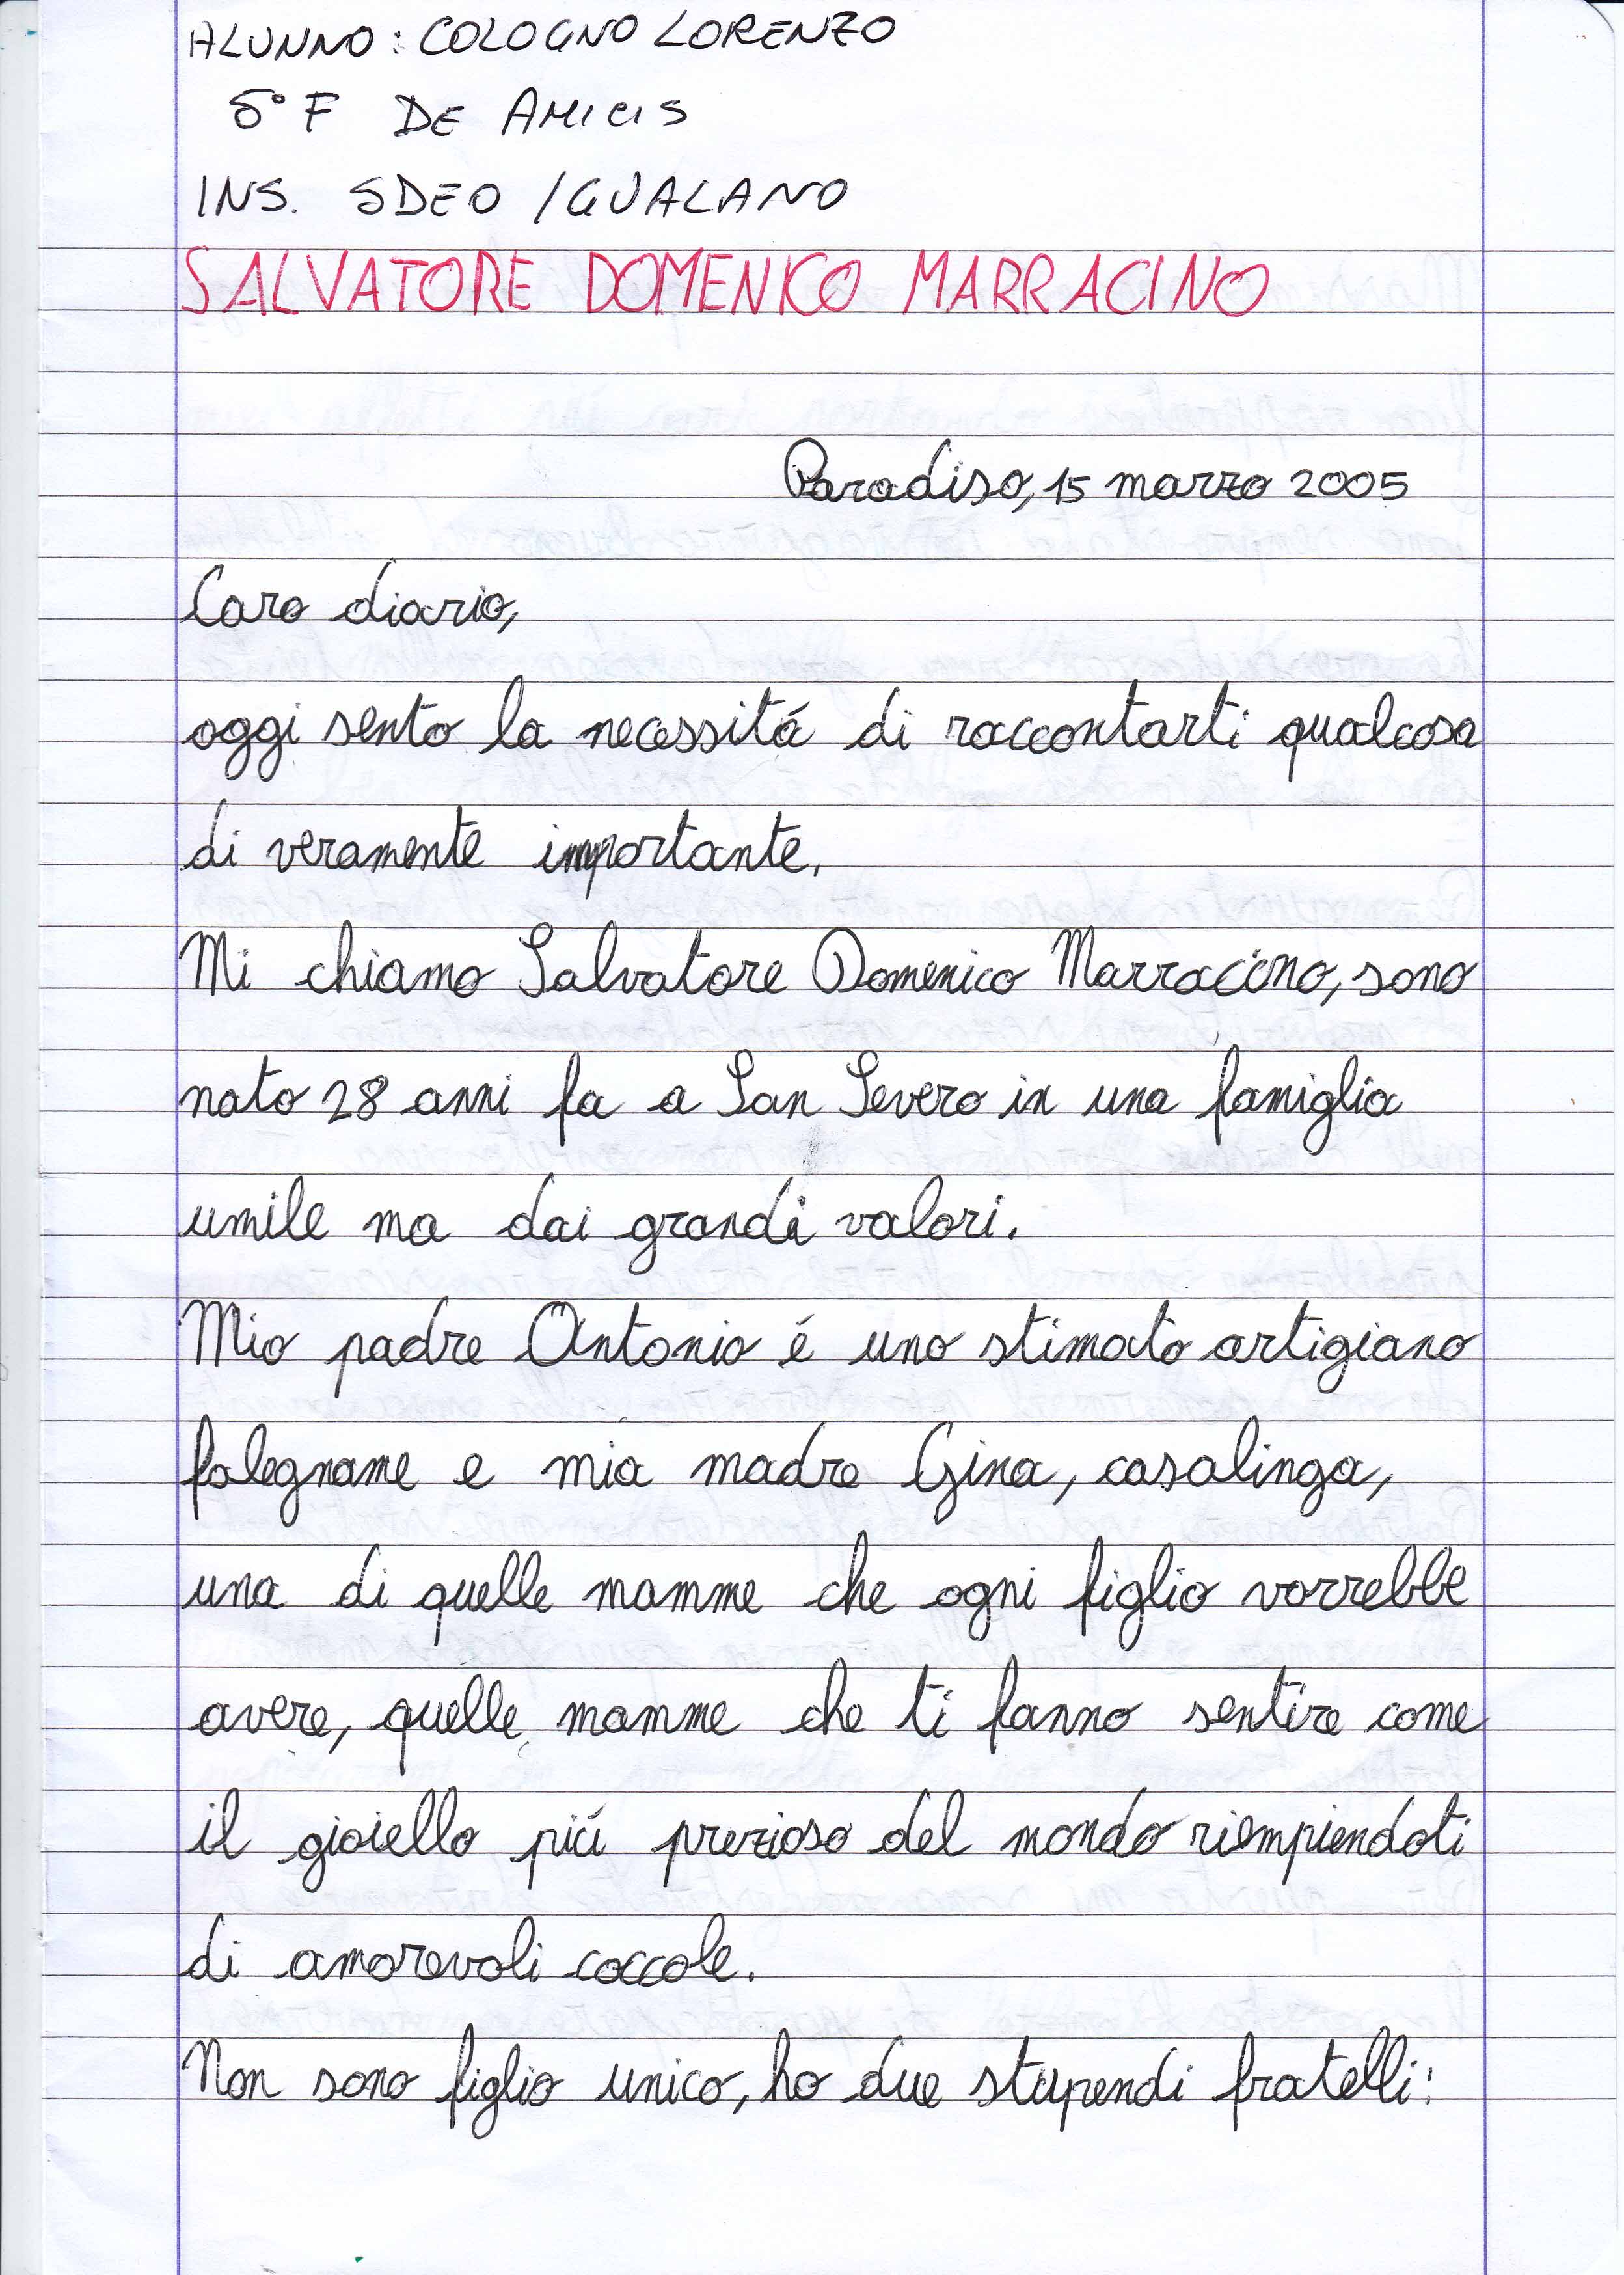 ALUNNO: COLOGNO LORENZO
5° F DE AMICIS
INS. SDEO / GUALANO
SALVATORE DOMENICO MARRACINO
Paradiso, 15 marzo 2005
Caro diario,
oggi sento la necessitá di raccontarti qualcosa
di veramente importante.
Mi chiamo Salvatore Domenico Marracino, sono
nato 28 anni fa a San Severo in una famiglia
umile ma dai grandi valori.
Mio padre Antonio é uno stimato artigiano
falegname e mia madre Gina, casalinga,
una di quelle mamme che ogni figlio vorrebbe
avere, quelle mamme che ti fanno sentire come
il gioiello piú prezioso del mondo riempiendoti
di amorevoli coccole.
Non sono figlio unico, ho due stupendi fratelli: